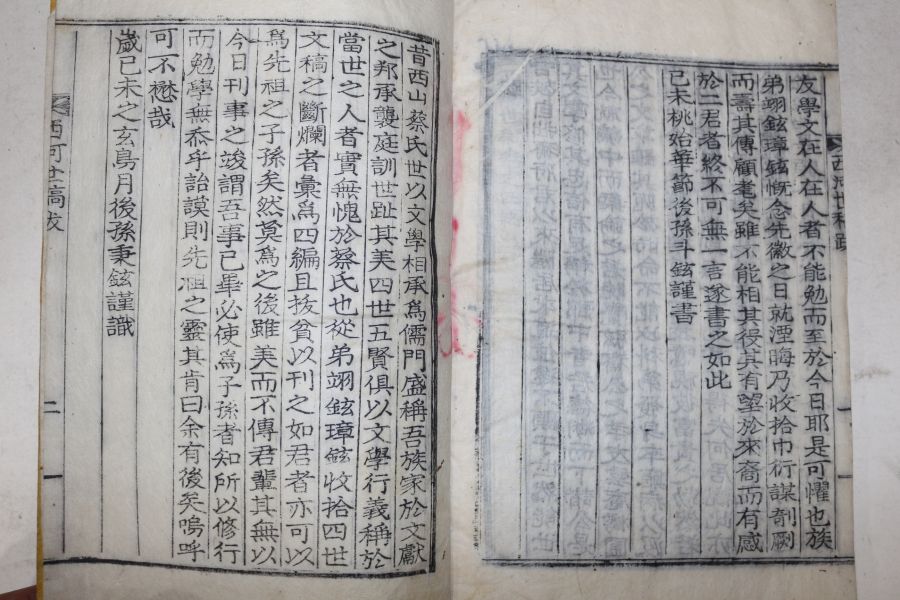 友學文在人在人者不能勉而至於今日耶是可懼也族
弟翊鉉璋鉉慨念先徽之日就湮晦乃收拾巾衍謀剞劂
而壽其傳顧耄矣雖不能相其役其有望於來裔而有感
於二君者終不可無一言遂書之如此
己未桃始華節後孫斗鉉謹書
昔西山蔡氏世以文學相承爲儒門盛稱吾族家於文獻
之邦承襲庭訓世趾其美四世五賢俱以文學行義稱於
當世之人者實無愧於蔡氏也從弟翊鉉璋鉉收拾四世
文稿之斷爛者彙爲四編且拔貧以刊之如君者亦可以
爲先祖之子孫矣然莫爲之後雖美而不傳君輩其無以
今日刊事之竣謂吾事已畢必使爲子孫者知所以修行
而勉學無忝乎詒謨則先祖之靈其肯曰余有後矣嗚呼
可不懋哉
歲己未之玄鳥月後孫秉鉉謹識
西河世稿跋
二